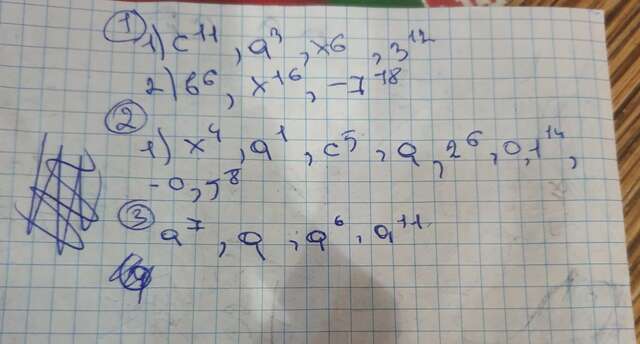 ①
1) c¹¹, a³, x6, 3¹²
2) в⁶, x¹⁶, -7¹⁸
②
1) x⁴, a¹, c⁵, a, 2⁶, 0,1¹⁴,
-0,5⁸
③
a⁷, a, a⁶, a¹¹